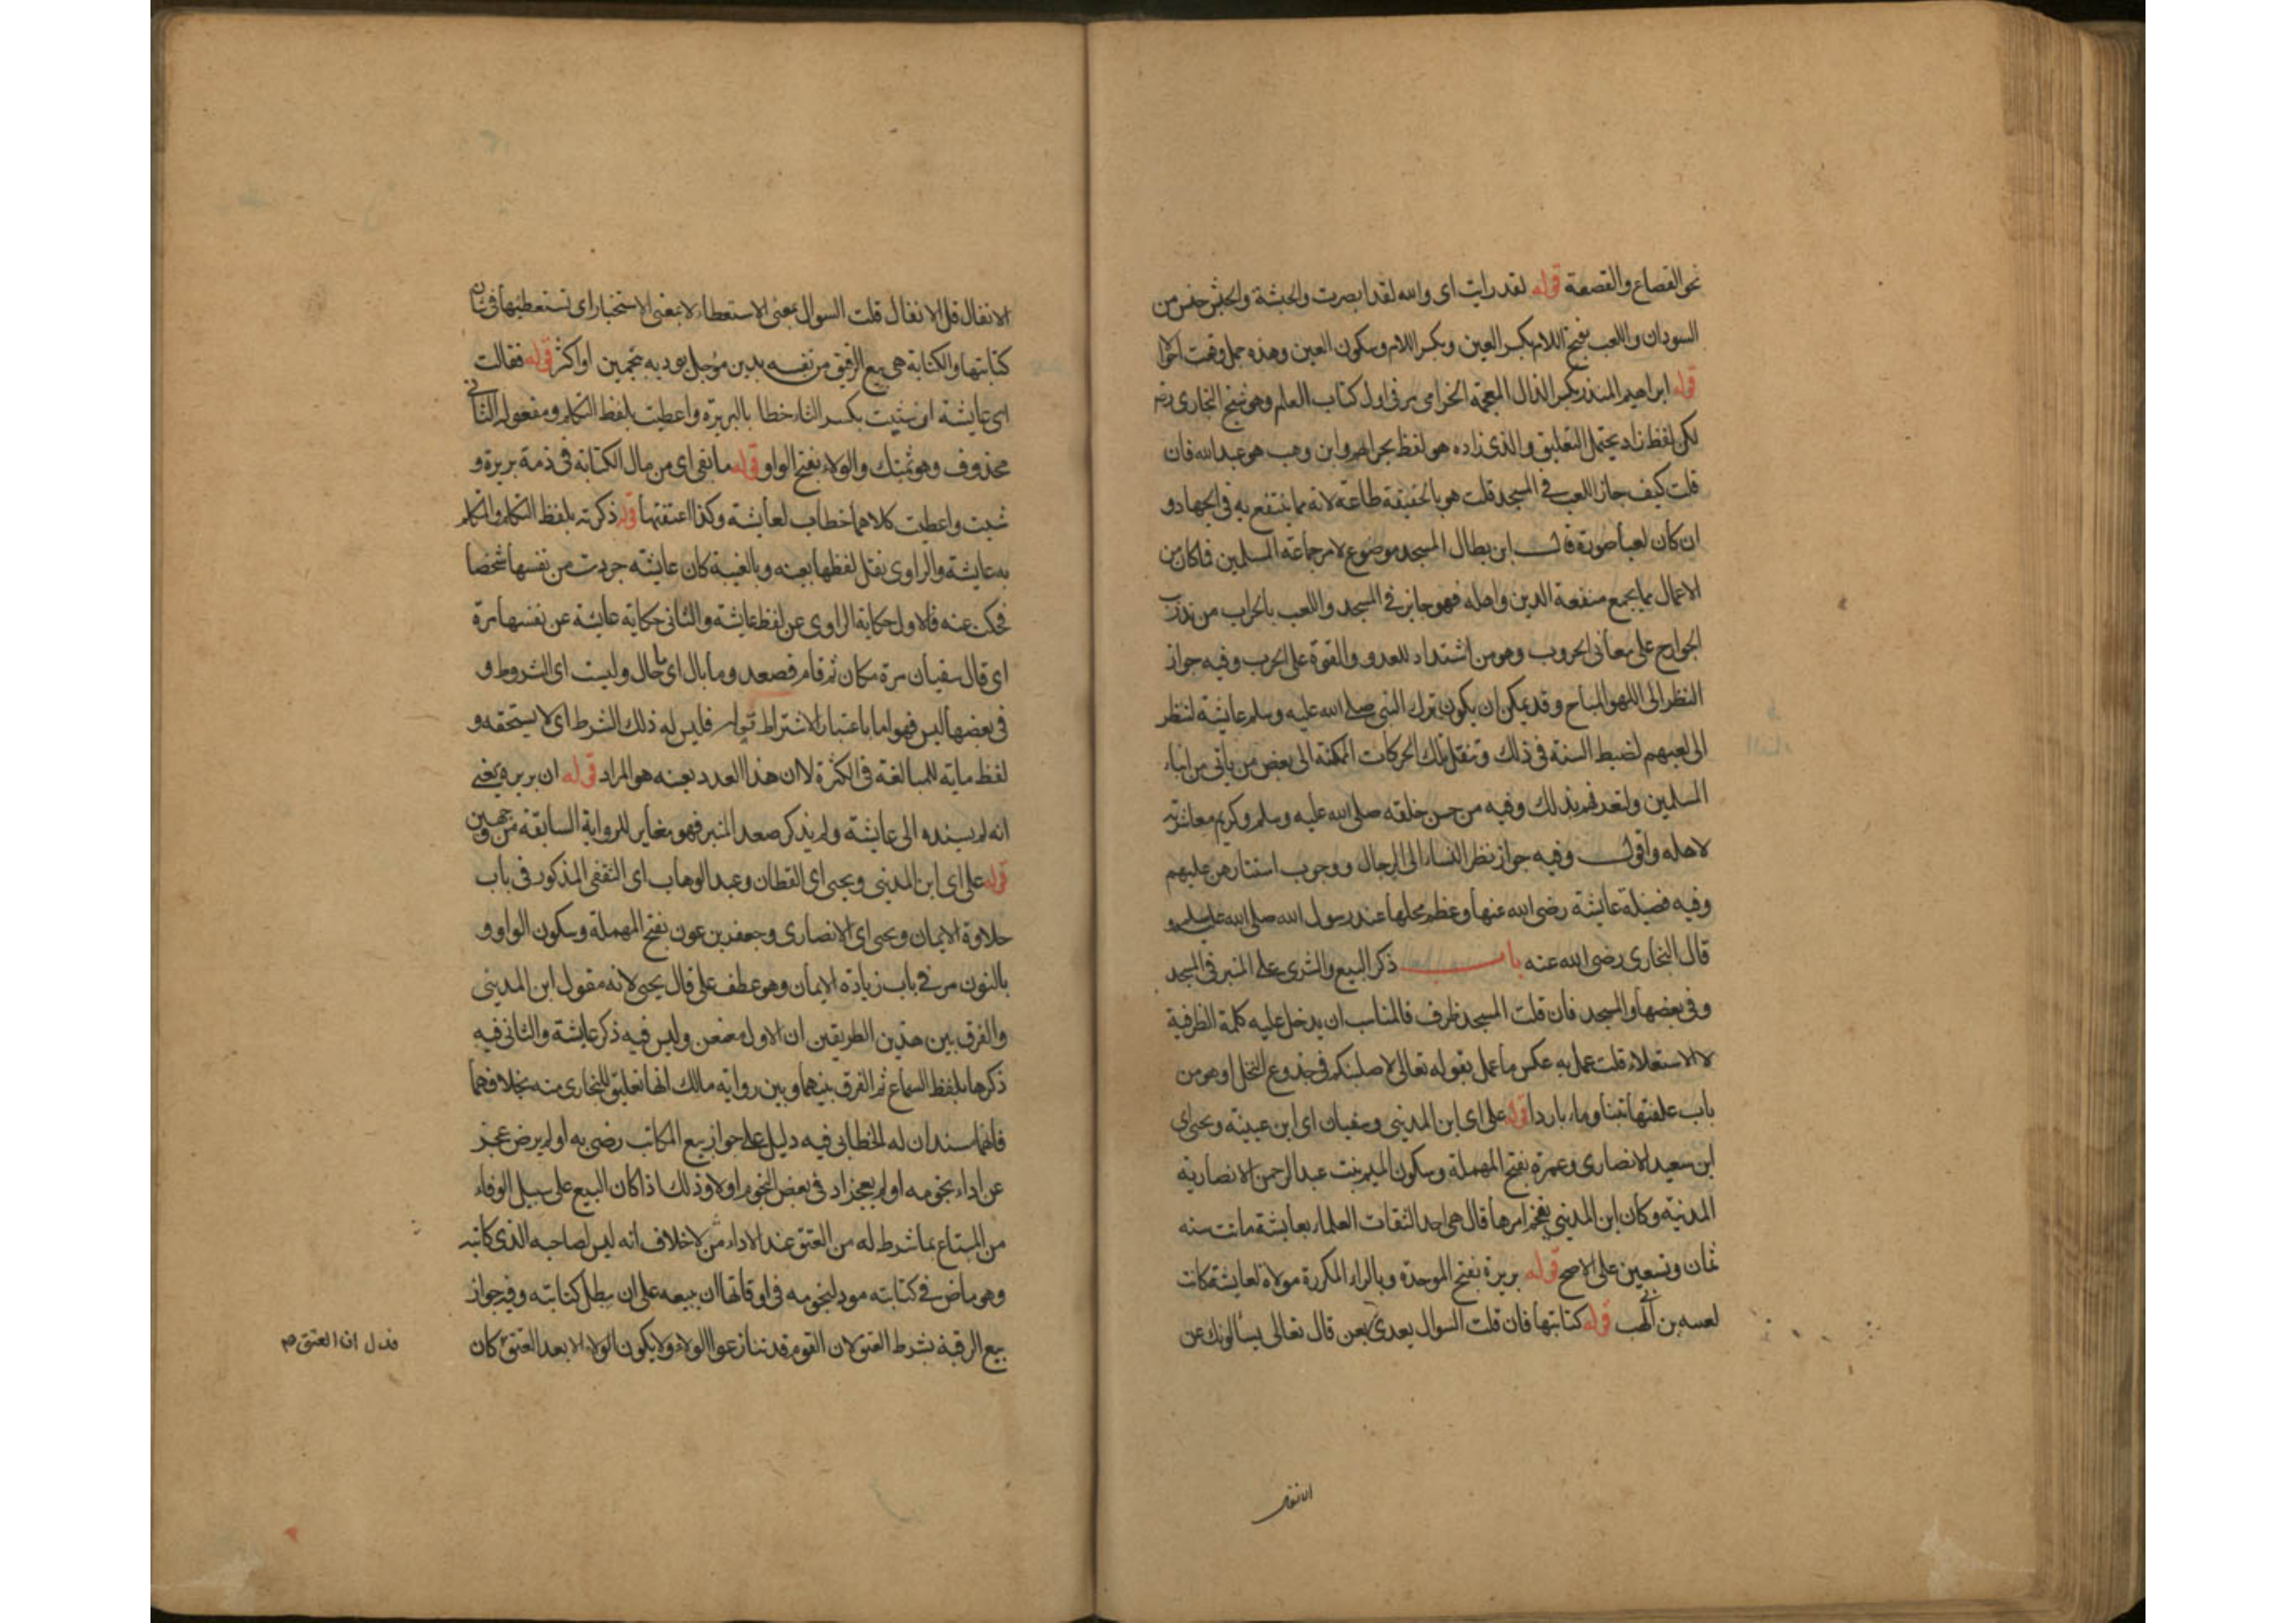 نحو القصاع والقصعة قوله لقد رايت اى والله لقد ابصرت والحبشة والحبش جنس من
السودان واللعب بفتح اللام بكسر العين وبكسر اللام وسكون العين وهذه جمل وقعت احوالا
قوله ابراهيم المنذر بكسر الذال المعجمة الحزامى مر فى اول كتاب العلم وهو شيخ البخارى
لكن لفظ زاد يحتمل التعليق والذى زاده هو لفظ بحرابهم وابن وهب هو عبد الله فان
قلت كيف جاز اللعب فى المسجد قلت هو بالحقيقة طاعة لانه مما ينتفع به فى الجهاد و
ان كان لعبا صورة قال ابن بطال المسجد موضوع لامر جماعة المسلمين فما كان من
الاعمال مما يجمع منفعة الدين واهله فهو جايز فى المسجد واللعب بالحراب من تدريب
الجوارح على معانى الحروب وهو من اشتداد للعدو والقوة على الحرب وفيه جواز
النظر الى اللهو المباح وقد يمكن ان يكون ترك النبى صلى الله عليه وسلم عايشة لتنظر
الى لعبهم لضبط السنة فى ذلك وتنقل تلك الحركات المحكمة الى بعض من ياتى من ابناء
المسلمين وتعرفهم بذلك وفيه من حسن خلقه صلى الله عليه وسلم وكريم معاشرته
لاهله واقول وفيه جواز نظر النساء الى الرجال ووجوب استتارهن عليهم
وفيه فضيلة عايشة رضى الله عنها وعظم محلها عند رسول الله صلى الله عليه وسلم و
قال البخارى رضى الله عنه باب ذكر البيع والشرى على المنبر فى المسجد
وفى بعضها والمسجد فان قلت المسجد ظرف فالمناسب ان يدخل عليه كلمة الظرفية
لا الاستعلاء قلت عمل به عكس ما عمل بقوله تعالى لاصلبنكم فى جذوع النخل او هو من
باب علفتها تبنا وماء باردا قوله على اى ابن المدينى وسفيان اى ابن عيينة ويحيى اى
ابن سعيد الانصارى وعمرة بفتح المهملة وسكون الميم بنت عبد الرحمن الانصارية
المدنية وكان ابن المدينى يفخم امرها قال هى احد الثقات العلماء بعايشة ماتت سنه
ثمان وتسعين على الاصح قوله بريرة بفتح الموحدة وبالراء المكررة مولاة لعايشة كانت
لعتبه بن ابى لهب قوله كتابتها فان قلت السوال يعدى بعن قال تعالى يسالونك عن
الانفال
الانفال قل الانفال قلت السوال بمعنى الاستعطاء لا بمعنى الاستخبار اى تستعطيها فى شان
كتابتها والكتابة هى بيع الرقيق من نفسه بدين مؤجل يوديه بنجمين او اكثر قوله فقالت
اى عايشة ان شيت بكسر التاء خطابا لبريرة واعطيت بلفظ التكلم ومفعوله الثانى
محذوف وهو ثمنك والولاء بفتح الواو قوله ما بقى اى من مال الكتابة فى ذمة بريرة و
شيت واعطيت كلاهما خطاب لعايشة وكذا اعتقتها قوله ذكرته بلفظ التكلم والمتكلم
به عايشة والراوى نقل لفظها بعينه وبالغيبة كان عايشة جردت من نفسها شخصا
فحكت عنه فالاول حكاية الراوى عن لفظ عايشة والثانى حكاية عايشة عن نفسها مرة
اى قال سفيان مرة مكان ثم قام فصعد وما بال اى ما حال وليست اى الشروط و
فى بعضها ليس فهو اما باعتبار الاشتراط فليس له ذلك الشرط اى لا يستحقه و
لفظ ماية للمبالغة فى الكثرة لا ان هذا العدد بعينه هو المراد قوله ان بريرة يعنى
انه لم يسنده الى عايشة ولم يذكر صعد المنبر فهو مغاير للرواية السابقة من وجهين
قوله على اى ابن المدينى ويحيى اى القطان وعبد الوهاب اى الثقفى المذكور فى باب
حلاوة الايمان ويحيى اى الانصارى وجعفر بن عون بفتح المهملة وسكون الواو و
بالنون مر فى باب زيادة الايمان وهو عطف على قال يحيى لانه مقول ابن المدينى
والفرق بين هذين الطريقين ان الاول معنعن وليس فيه ذكر عايشة والثانى فيه
ذكرها بلفظ السماع ثم الفرق بينهما وبين رواية مالك انها تعليق للبخارى منه بخلافهما
فانهما مسندان له الخطابى فيه دليل على جواز بيع المكاتب رضى به او لم يرض عجز
عن اداء نجومه او لم يعجز ادى بعض النجوم اولا وذلك اذا كان البيع على سبيل الوفاء
من المبتاع بما شرط له من العتق عند الاداء من لا خلاف انه ليس لصاحبه الذى كاتبه
وهو ماض فى كتابته مود لنجومه فى اوقاتها ان يبيعه على ان يبطل كتابته وفيه جواز
بيع الرقبة بشرط العتق لان القوم قد تنازعوا الولاء ولا يكون الولاء الا بعد العتق كان
فدل ان العتق صح